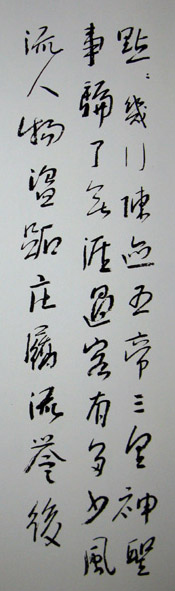 點點幾行陳迹五帝三皇神聖
事騙了無涯過客有多少風
流人物盜跖庄蹻流譽後